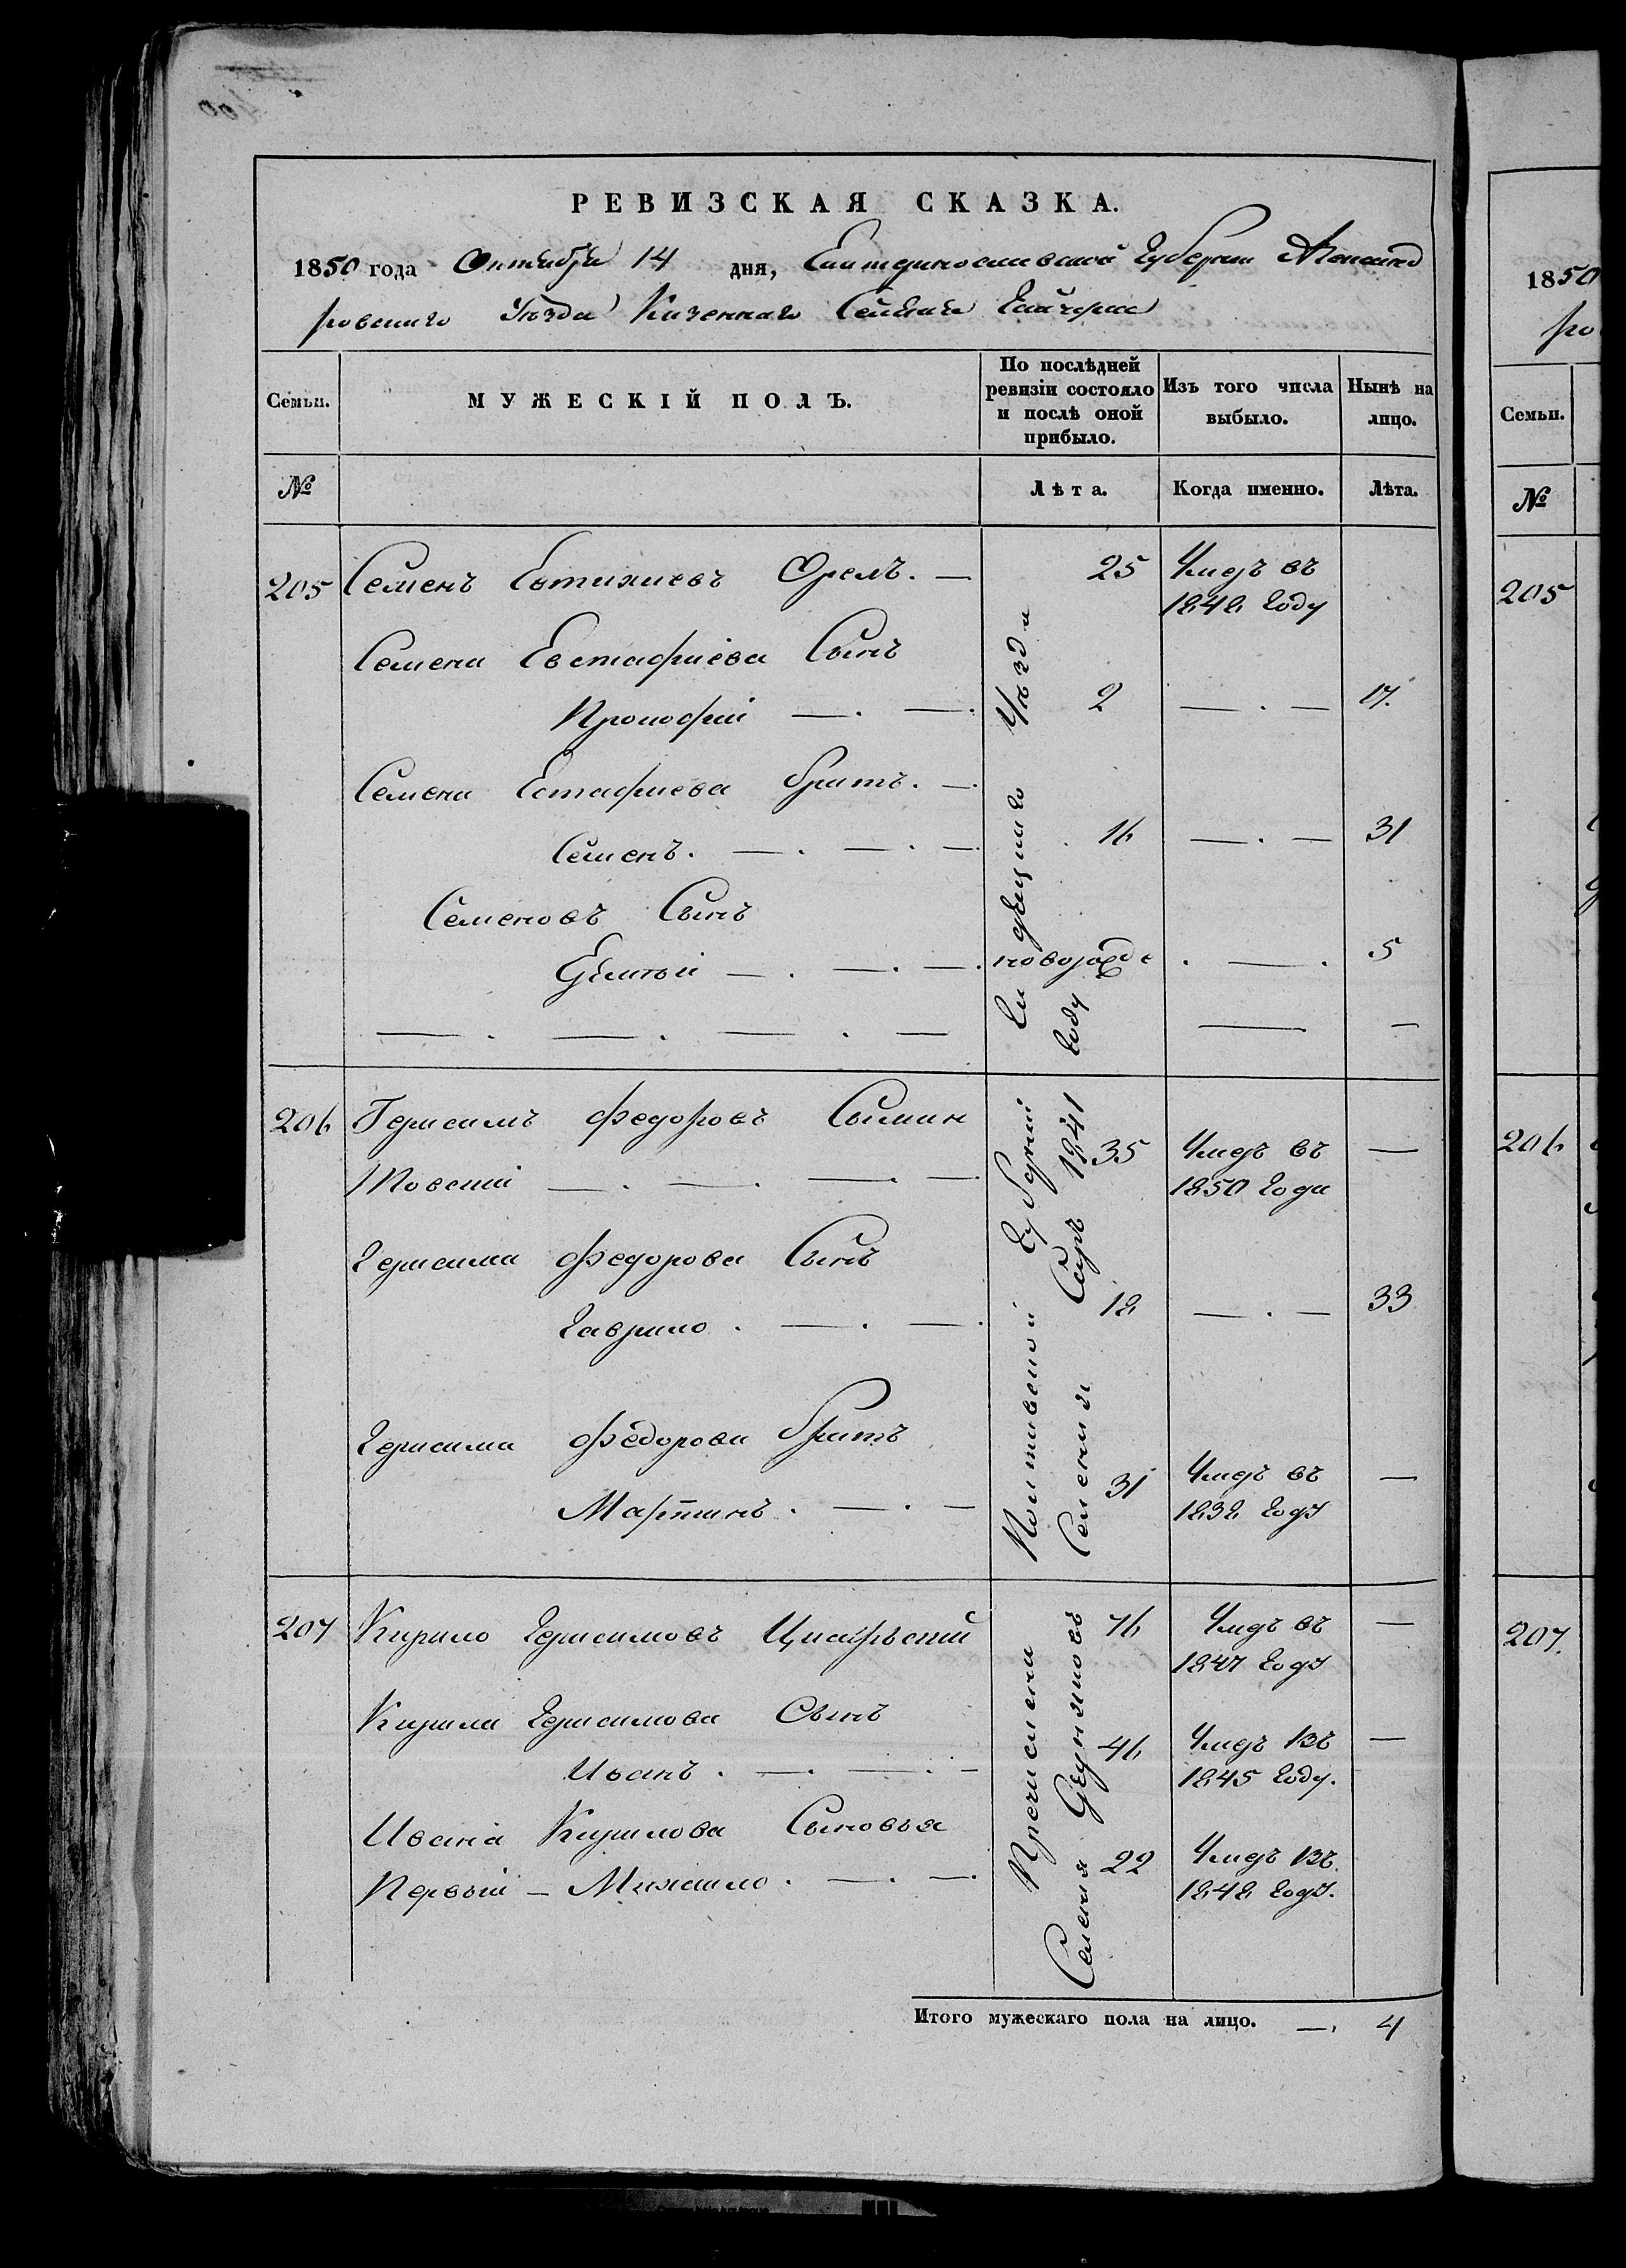 РЕВИЗСКАЯ СКАЗКА.
1850 года Октября 14 дня, Екатеринославской Губернии Александ
ровскаго Уѣзда Казеннаго Селенія Гайчура
Семьи. МУЖЕСКІЙ ПОЛЪ. По послѣдней ревизіи состояло и послѣ оной прибыло. Изъ того числа выбыло. Нынѣ на лицо.
№ Лѣта. Когда именно. Лѣта.
205 Семенъ Евтихиевъ Орелъ. — 25 Умеръ въ
1842 году
Семена Евстафиева Сынъ
Прокофій — . — . 2 — . — 17.
Семена Естафиева братъ. —
Семенъ. — . — . — 16 — . — 31
Семеновъ Сынъ
— . — . — . новорожде . — . 5
— . — . — . — — —
Уѣзда
году
206 Герасимъ Федоровъ
— . — . — . — 35 Умеръ въ —
1850 года
Герасима Федорова Сынъ
Гаврило . — . — . 18 — . — 33
Герасима Федорова братъ
Мартинъ . — . — 31 Умеръ въ —
1838 году
Полтавской Губерніи
Селенія 1841
207 Кирило Герасимовъ 76 Умеръ въ —
1847 году
Кирила Герасимова Сынъ
Иванъ . — . — . — 46 Умеръ въ —
1845 году.
Ивана Кирилова Сыновья
Первый — Михайло . — . — . 22 Умеръ въ
1842 году.
Причислены
Селенія
Итого мужескаго пола на лицо. — . 4
1850
ро
Семьи.
№
205
206
207.